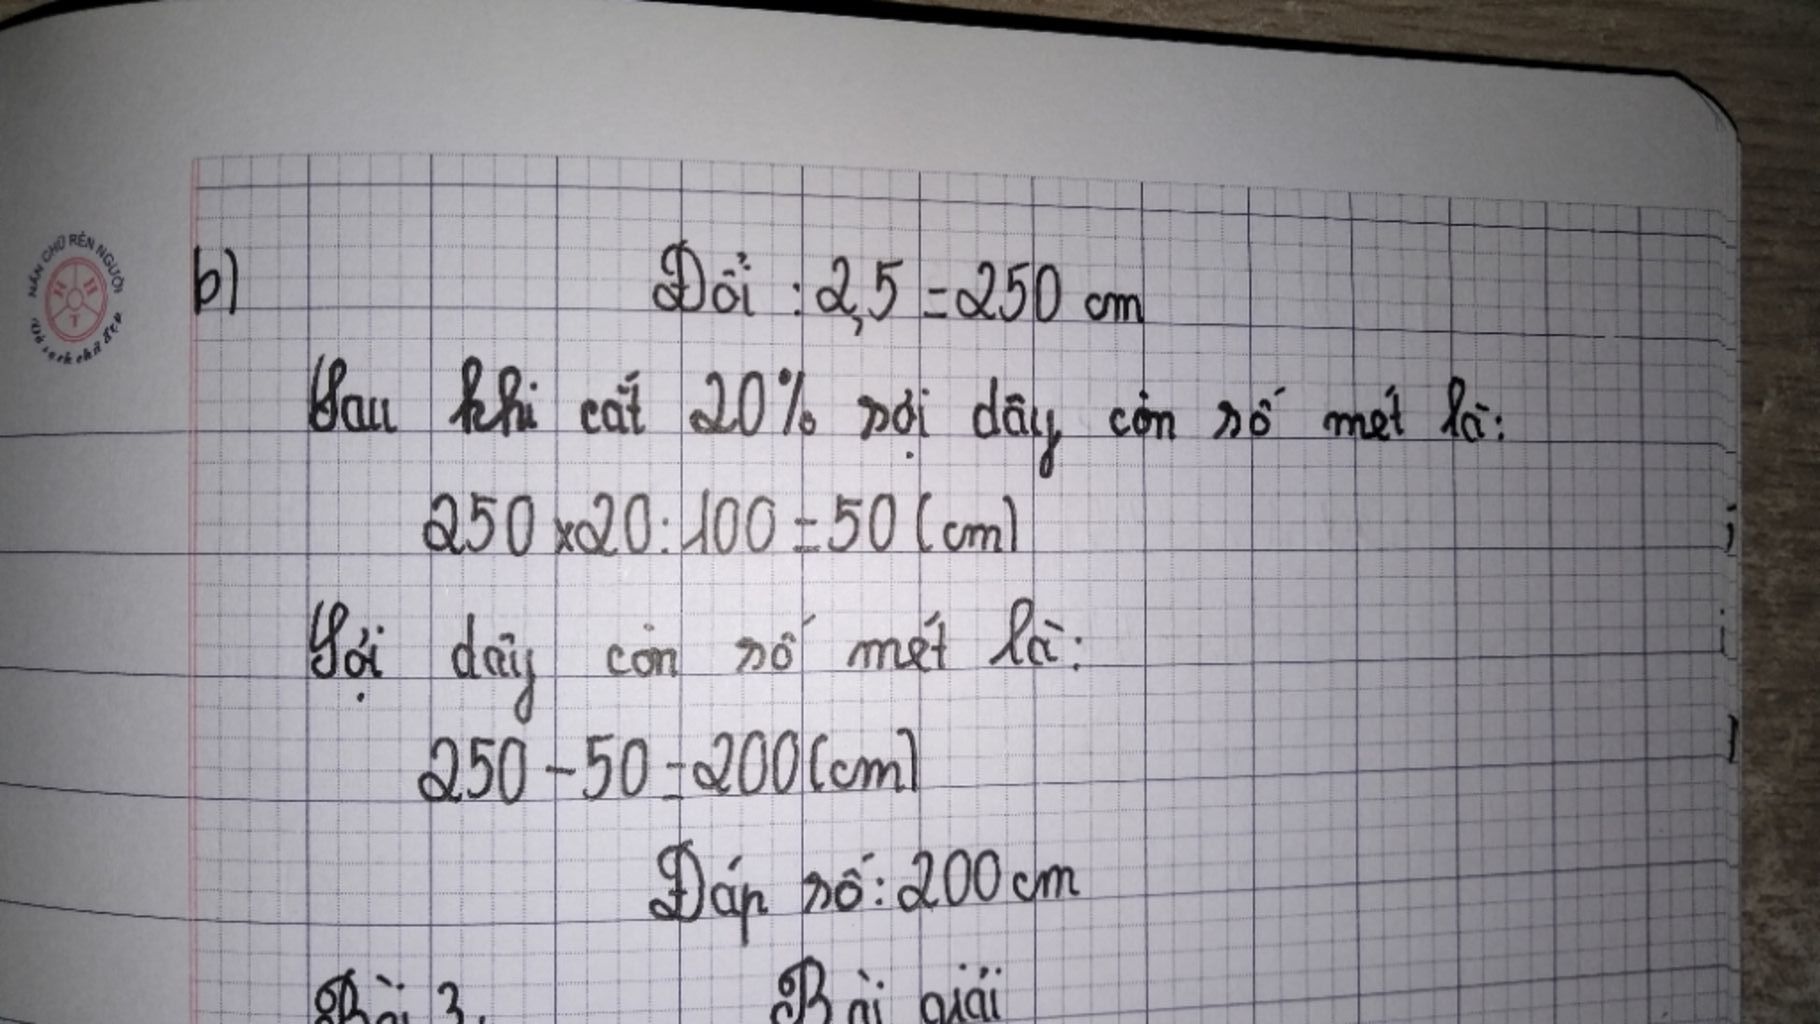 NẮN CHỮ RÈN NGƯỜI
H H T
b) Đổi : 2,5 = 250 cm
Sau khi cắt 20% sợi dây còn số mét là:
250 x 20 : 100 = 50 (cm)
Sợi dây còn số mét là:
250 - 50 = 200 (cm)
Đáp số: 200 cm
Bài 3. Bài giải